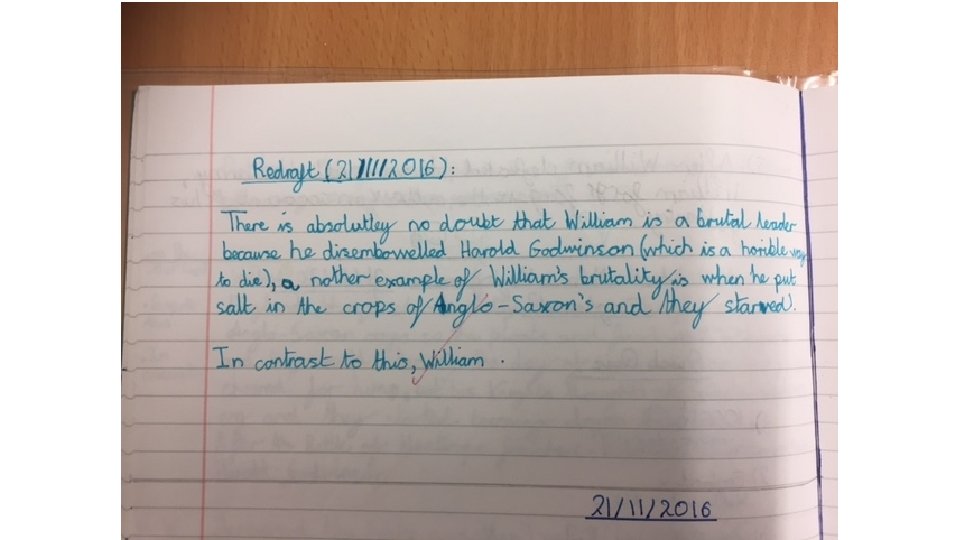 Redraft (21/11/2016):
There is absolutley no doubt that William is a brutal leader
because he disembowelled Harold Godwinson (which is a horible way
to die), a nother example of William's brutality is when he put
salt in the crops of Anglo-Saxon's and they starved.
In contrast to this, William .
21/11/2016